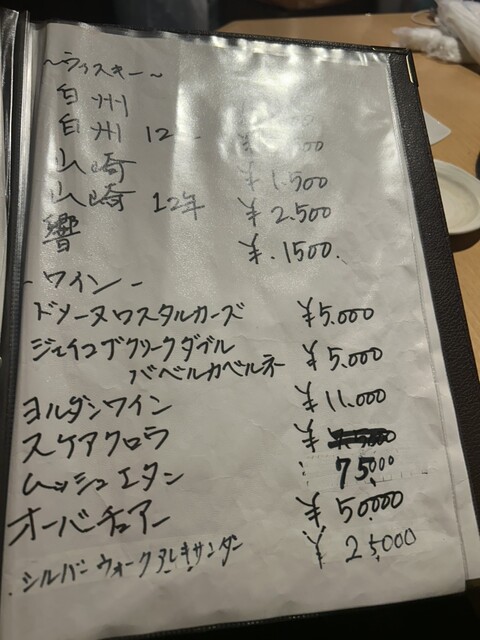 ～ウィスキー～
白州
白州 12
山崎 ¥1.500
山崎 12年 ¥2.500
響 ¥.1500.
-ワイン-
ドメーヌロスタルカーズ ¥5.000
ジェイコブクリークダブル
バベルカベルネー ¥5.000
ヨルダンワイン ¥11.000
スケアクロウ ¥
75,000
ムッシュエタン
オーバチュアー ¥50000
.シルバーウォークアレキサンダー ¥25000